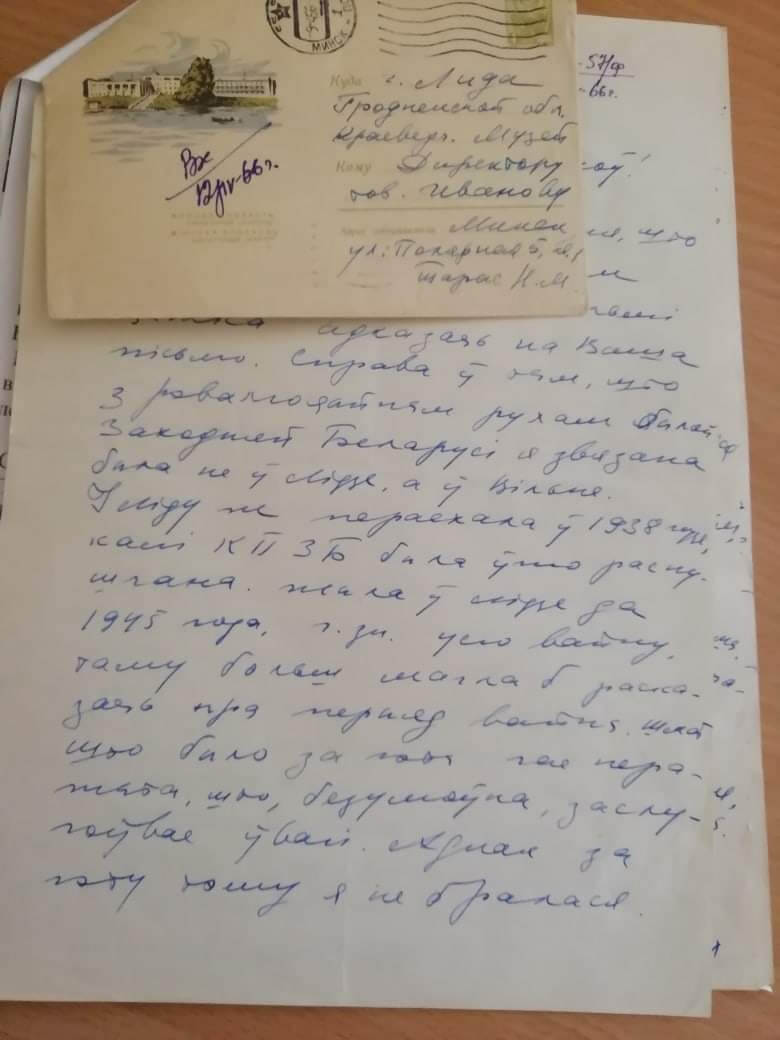 МИНСК
Куда г. Лида
Гродненской обл.
Краеведч. Музей
Кому Директору
тов. Иванову
Минск
ул: Пожарная 5, кв.
Тарас Н. М.
Вх
12/IV-66г.
57/ф
-66г.
што
адказаць на Ваша
пісьмо. Справа ў тым, што
з рэвалюцыйным рухам былой
Заходняй Беларусі я звязана
была не ў Лідзе, а ў Вільне.
У Ліду ж пераехала ў 1938 годзе,
калі КПЗБ была ўжо распу-
шчана. Жыла ў Лідзе да
1945 года, г. зн. усю вайну,
таму больш магла б раска-
заць пра перыяд вайны. Шмат
што было за гэты час пера-
жыта, што, безумоўна, заслу-
гоўвае ўвагі. Аднак за
гэту тэму я не бралася.